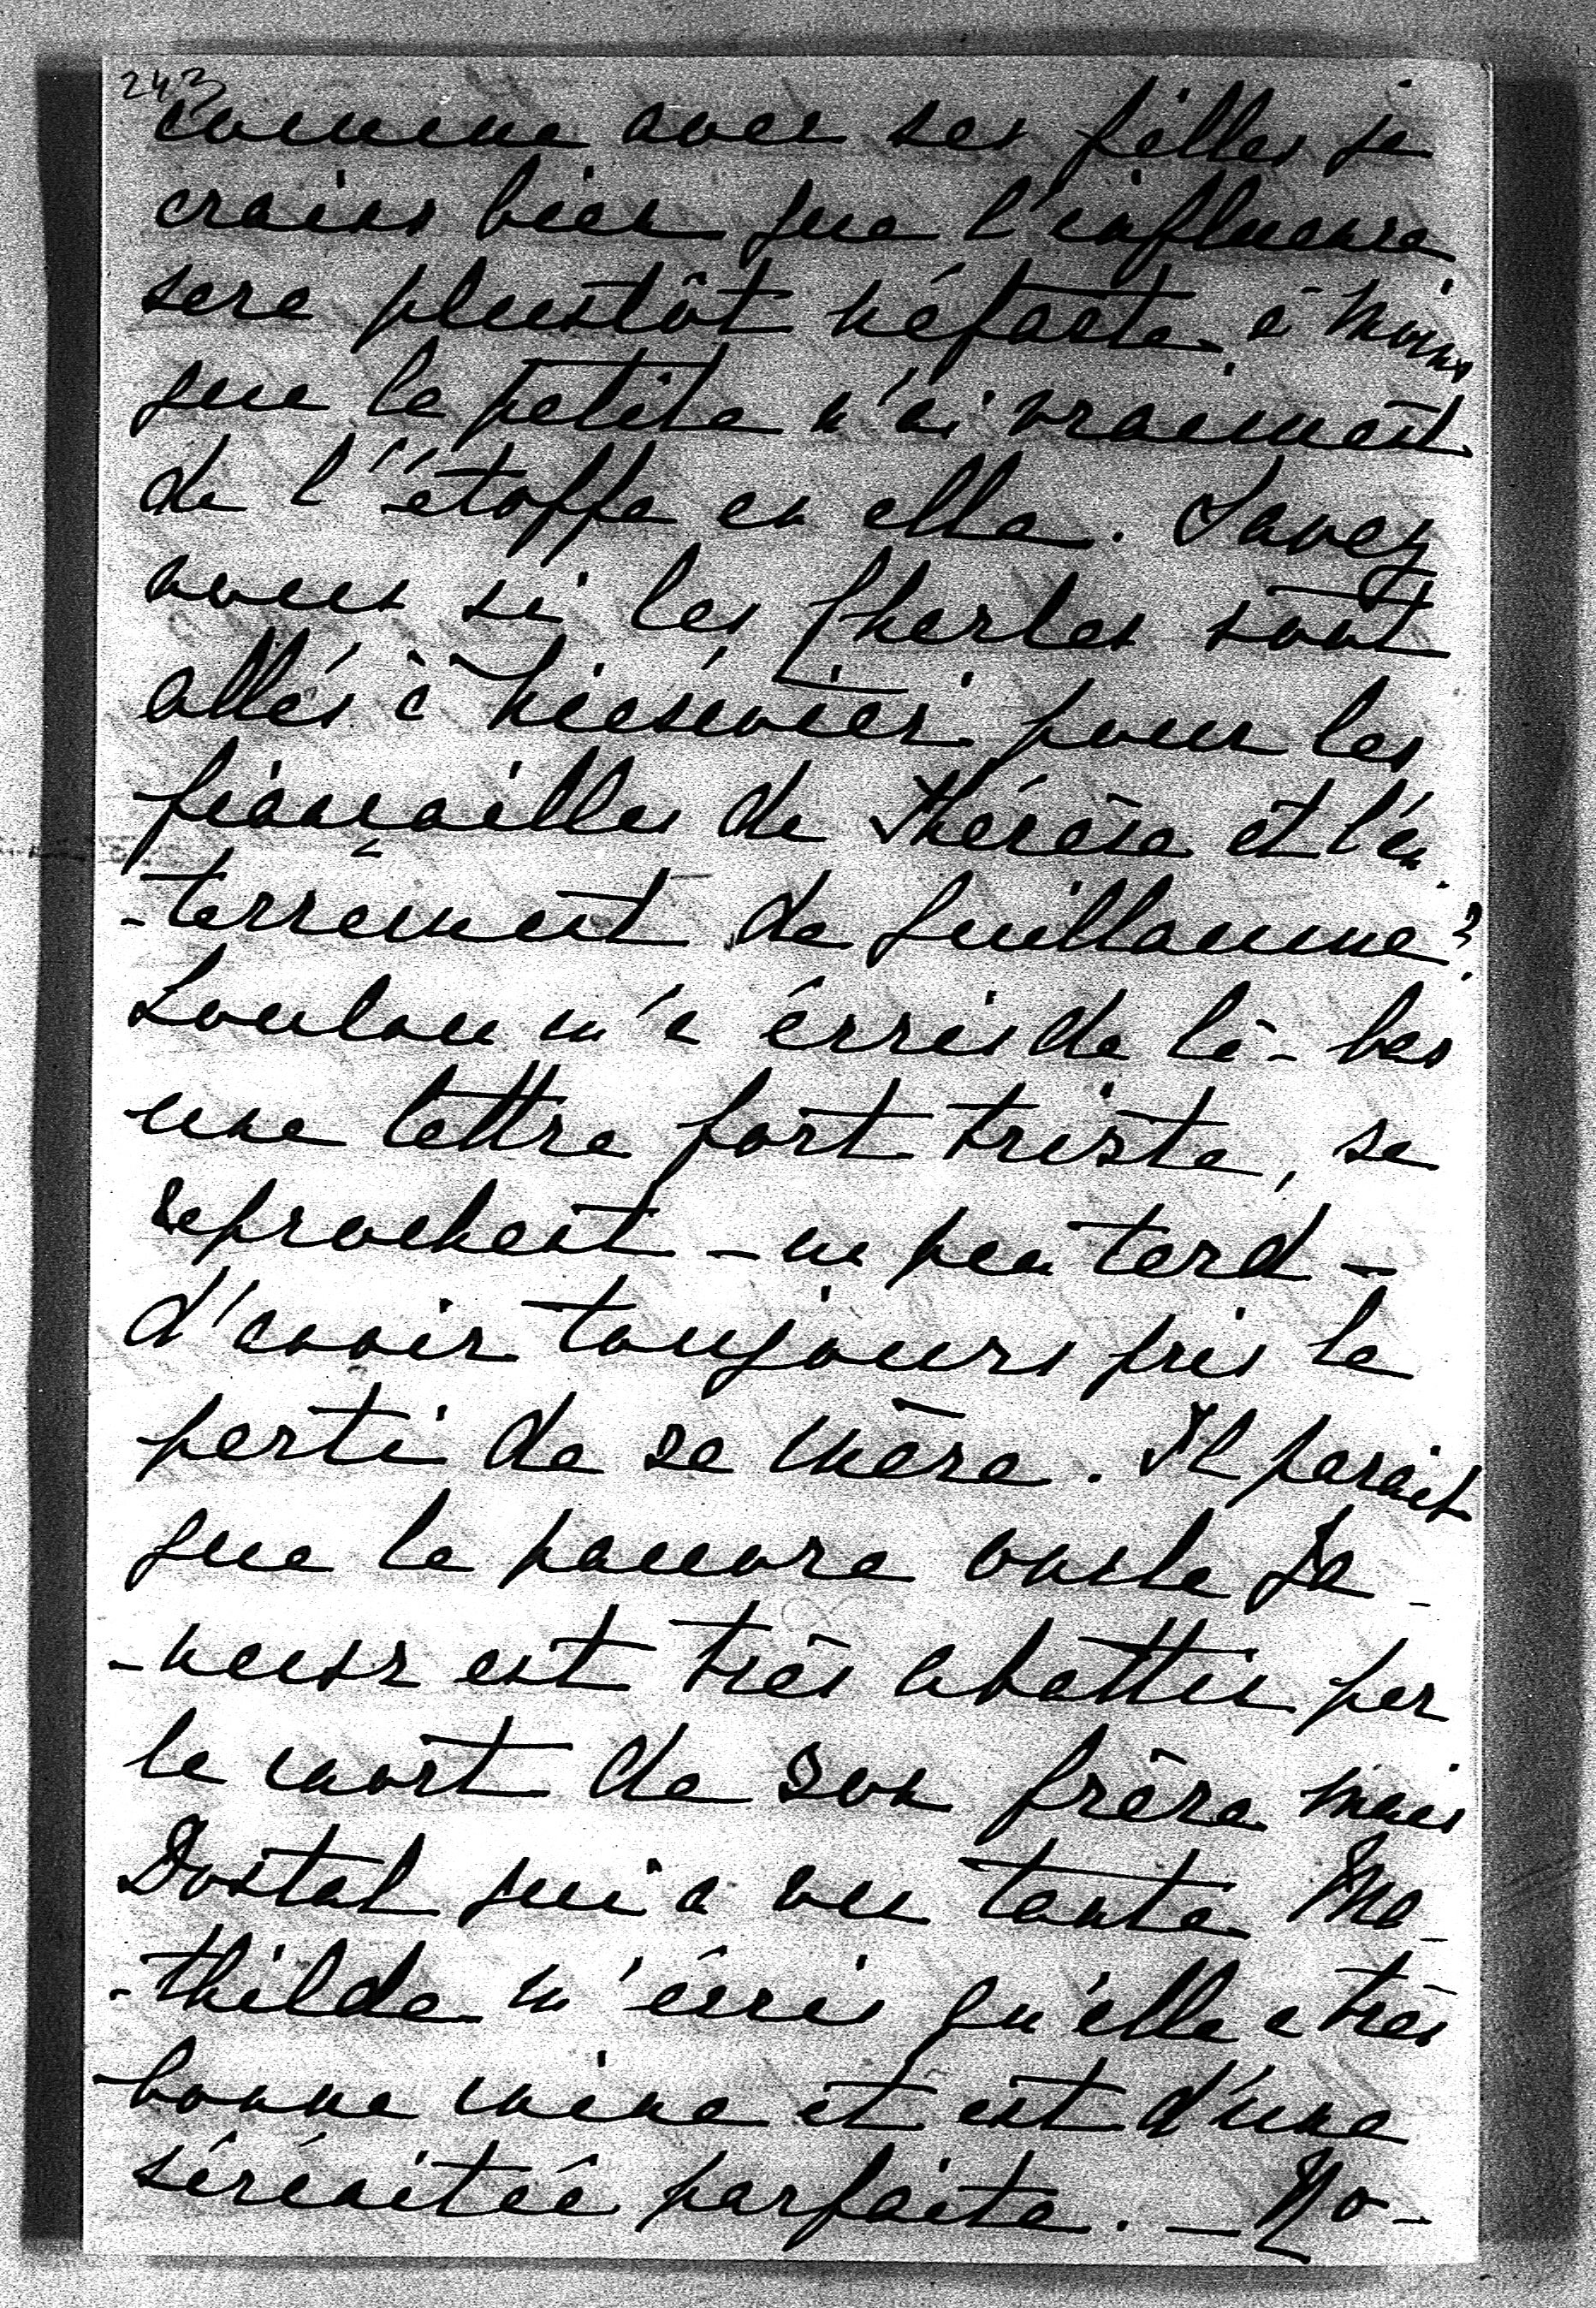 243
comme avec ses filles je
crains bien que l'influence
sera plustôt néfaste, à moins
que la petite n'ai vraiment
de l'étoffe en elle. Savez
vous si les Charles sont
allés à pour les
fiançailles de Thérèse et l'en
-terrement de Guillaume?
Loulou m'a écris de là-bas
une lettre fort triste, se
reprochant - un peu tard -
d'avoir toujours pris le
parti de sa mère. Il parait
que le pauvre oncle Ja-
-neusz est très abattu par
la mort de son frère mais
Dostal qui a vu tante Ma-
-thilde m'écris qu'elle a très
bonne mine et est d'une
sérénitée parfaite. - No-